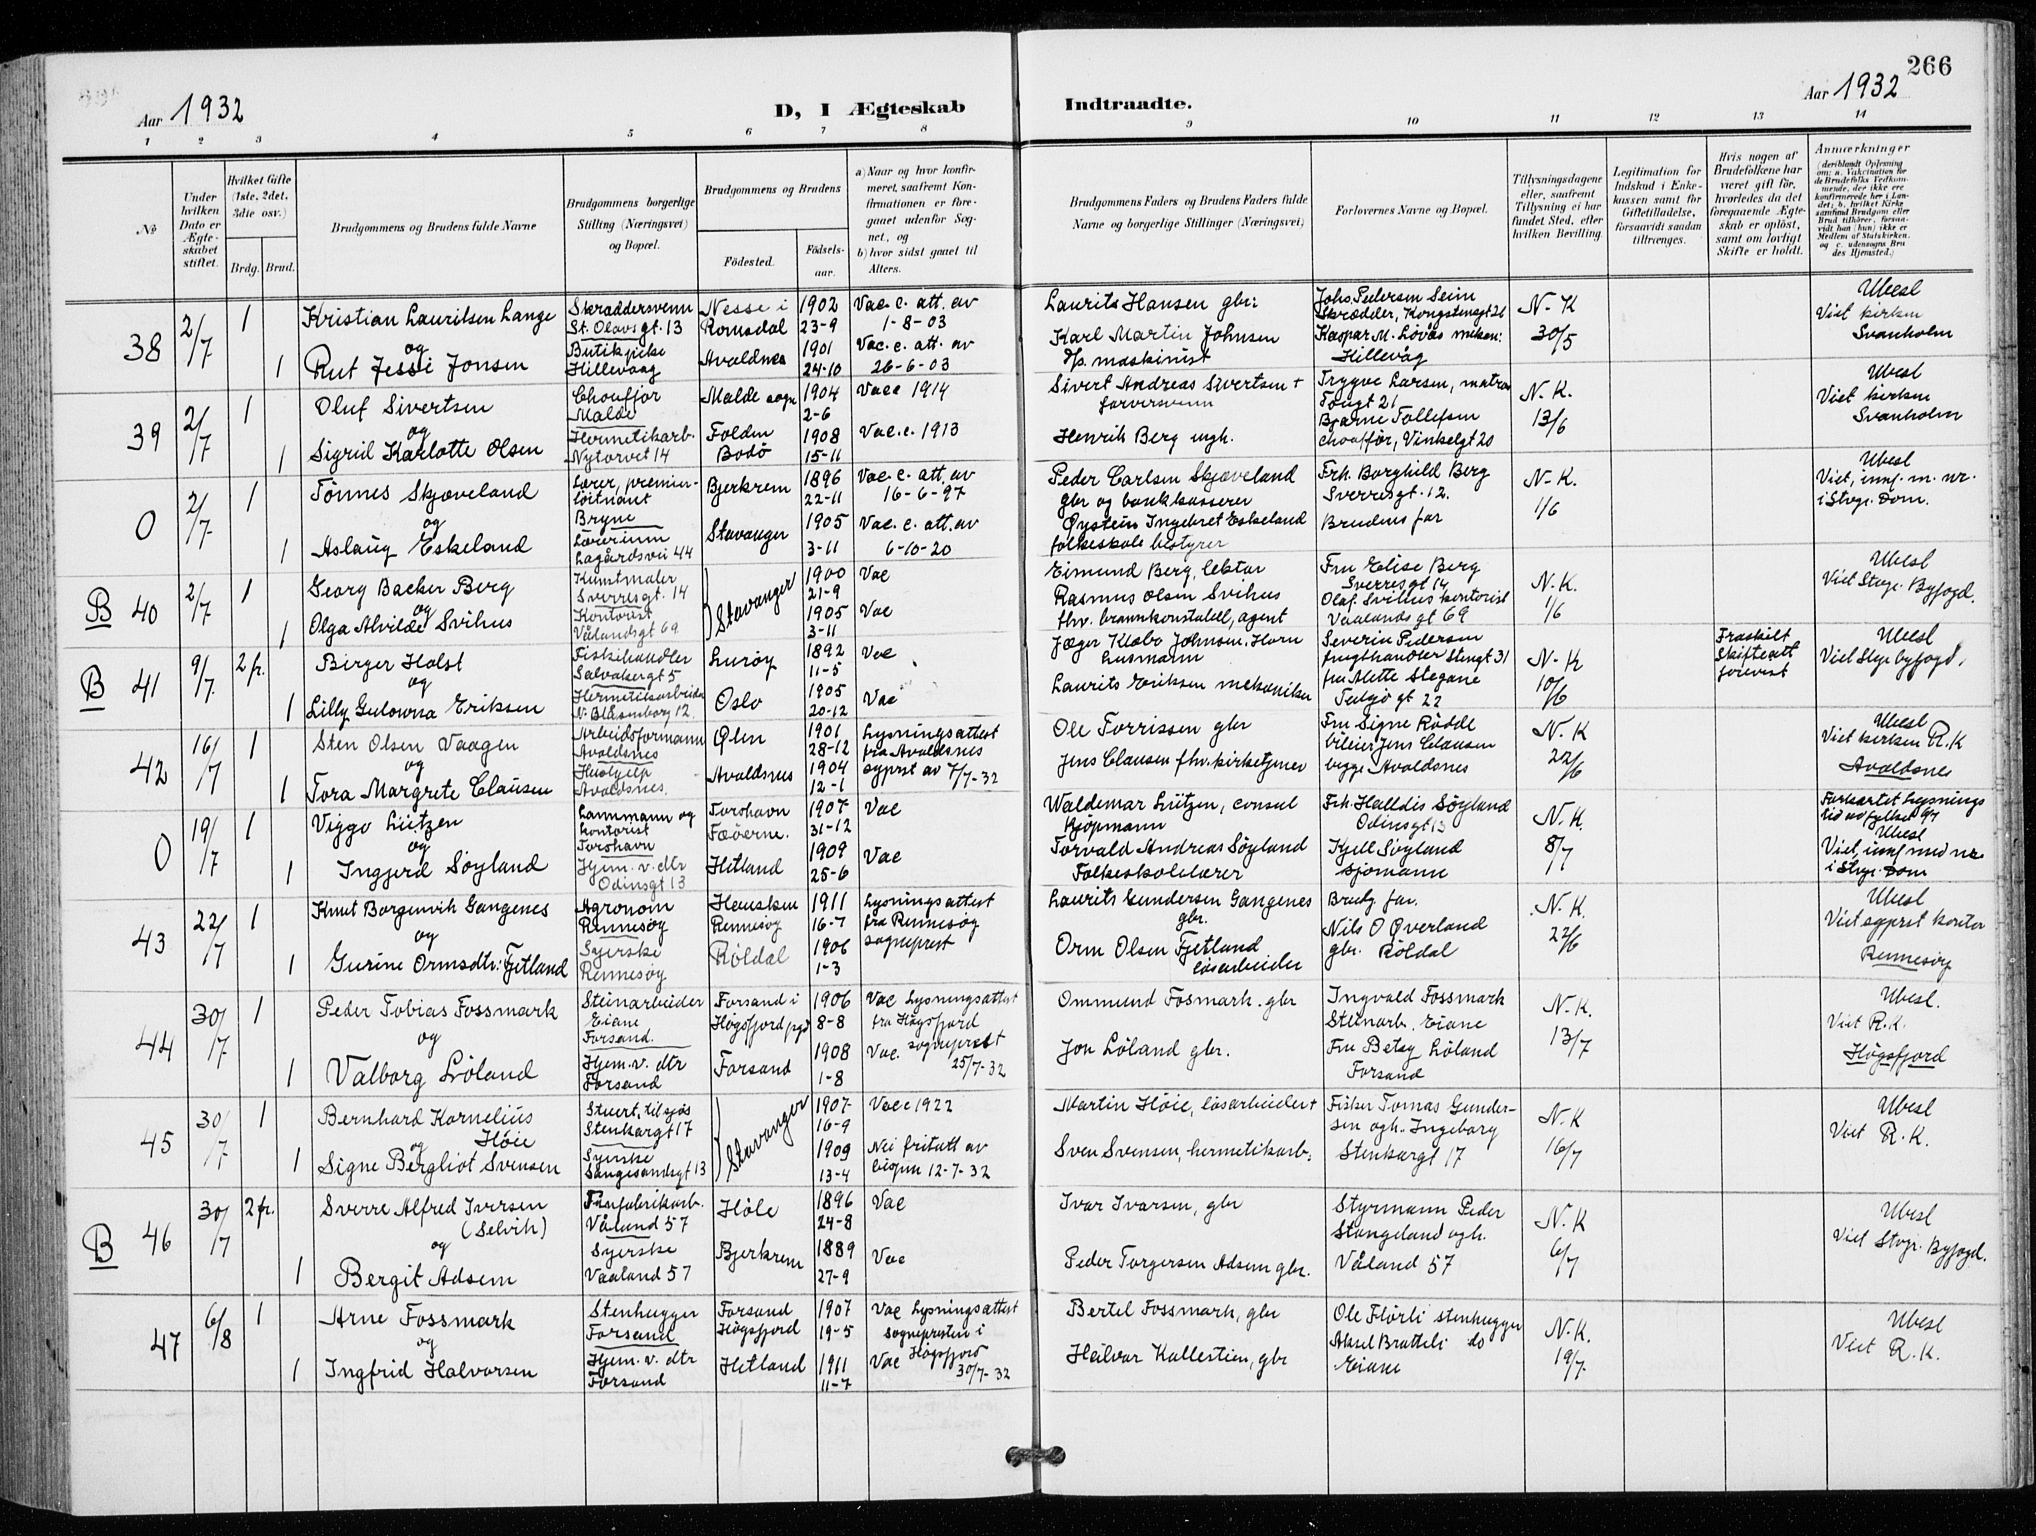 266
Aar 1932
D, I Ægteskab Indtraadte.
Aar 1932
1 2 3 4 5 6 7 8 9 10 11 12 13 14
No
Under hvilken Dato er Ægteskabet stiftet.
Hvilket Gifte (1ste, 2det, 3die osv.)
Brdg. Brud.
Brudgommens og Brudens fulde Navne
Brudgommens borgerlige Stilling (Næringsvei) og Bopæl.
Brudgommens og Brudens
Fødested. Fødselsaar.
a) Naar og hvor konfirmeret, saafremt Konfirmationen er foregaaet udenfor Sognet, og
b) hvor sidst gaaet til Alters.
Brudgommens Faders og Brudens Faders fulde Navne og borgerlige Stillinger (Næringsvei)
Forlovernes Navne og Bopæl.
Tillysningsdagene eller, saafremt Tillysning ei har fundet Sted, efter hvilken Bevilling
Legitimation for Indskud i Enkekassen samt for Giftetilladelse, forsaavidt saadan tiltrænges.
Hvis nogen af Brudefolkene har været gift før, hvorledes da det foregaaende Ægteskab er opløst, samt om lovligt Skifte er holdt.
Anmærkninger (deriblandt Oplysning om: a. Vakcination for de Brudefolks Vedkommende, der ikke ere konfirmerede her i Landet; b. hvilket Kirkesamfund Brudgom eller Brud tilhører, forsaavidt han (hun) ikke er Medlem af Statskirken, og c. udensogns Brudes Hjemsted.)
38 2/7 1 Kristian Lauritsen Lange Skræddersvenn St. Olavsgt. 13 Nesse i Romsdal 1902 23-9 Vac. c. att. av 1-8-03 Laurits Hansen gbr: Johs. Pedersen Seim Skrædder, Kongstensgt 26 N-K 30/5 Ubesl Viet kirken Svanholm
og
1 Rut Jessi Jonsen Butikpike Hillevaag Avaldnes 1901 24-10 Vac. c. att. av 26-6-03 Karl Martin Johnsen d/p. maskinist Kaspar M. Løvås mekan: Hillevåg
39 2/7 1 Oluf Sivertsen Chauffør Malde Malde sogn 1904 2-6 Vacc 1914 Sivert Andreas Sivertsen + farversvenn Trygve Larsen, matros Fougt 21 N.K. 13/6 Ubesl Viet kirken Svanholm
og
1 Sigrid Karlotte Olsen Hermetikarb. Nytorvet 14 Folden Bodö 1908 15-11 Vac. c. 1913 Henrik Berg ungk. Bjarne Tollefsen chauffør, Vinkelgt 20
0 2/7 1 Tönnes Skjæveland Lærer, premierløitnant Bryne Bjerkrem 1896 22-11 Vac. c. att. av 16-6-97 Peder Carlsen Skjæveland gbr og bankkasserer Frk. Borghild Berg Sverresgt. 12. N-K. 1/6 Ubesl Viet, innf. m. nr. i Stvgr. Dom.
og
1 Aslaug Eskeland Lærerinne Lagårdsvei 44 Stavanger 1905 3-11 Vac. c. att. av 6-10-20 Øystein Ingebret Eskeland folkeskole bestyrer Brudens far
B 40 2/7 1 Georg Backer Berg Kunstmaler Sverresgt. 14 Stavanger 1900 21-9 Vac Eimund Berg, lektor Fru Elise Berg Sverresgt 14 N.K. 1/6 Ubesl Viet Stvgr. Byfogd.
og
1 Olga Alvilde Svihus Kontorist Vålandsgt 69 1905 3-11 Vac Rasmus Olsen Svihus fhv. brannkonstabel, agent Olaf Svihus kontorist Vaalandsgt 69
B 41 9/7 2 fr. Birger Holst Fiskehandler Salvagergt 5 Lurøy 1892 11-5 Vac Jæger Klæbo Johnsen. Horn husmann Severin Pedersen frugthandler Stengt 31 N-K 10/6 Fraskilt Skifteatt forevist Ubesl Viet Stvgr byfogd.
og
1 Lilly Gulowna Eriksen Hermetikarbeider N. Blåsenborg 12. Oslo 1905 20-12 Vac Laurits Eriksen mekaniker fru Mette Stegane Tedjø gt 22
42 16/7 1 Sten Olsen Vaagen Arbeidsformann Avaldsnes Ølen 1901 28-12 Lysningsattest fra Avaldsnes sgprst av 7/7-32 Ole Torrissen gbr Fru Signe Rødde N. K 22/6 Ubesl Viet kirken R.K Avaldsnes
og
1 Tora Margrete Clausen Hushjelp Avaldsnes. Avaldsnes 1904 12-1 Jens Clausen fhv. kirketjener bileier Jens Clausen begge Avaldsnes
0 19/7 1 Viggo Lützen Lannmann og kontorist Torshavn Torshavn Færøerne. 1907 31-12 Vac Waldemar Lützen, consul Kjøpmann Frk. Halldis Søyland Odinsgt 13 N.K. 8/7 Forkortet lysningstid av fylket 9/7 Ubesl Viet, innf. med nr i Stvgr. Dom
og
1 Ingjerd Søyland Hjem. v. dtr Odinsgt 13 Hetland 1909 25-6 Vac Torvald Andreas Søyland Folkeskolelærer Kjell Søyland sjömann
43 22/7 1 Knut Borgenvik Gangenes Agronom Rennesøy Hausken Rennesøy 1911 16-7 Lysningsattest fra Rennesøy sogneprest Laurits Gundersen Gangenes gbr. Brudg far. N.K. 22/6 Ubesl Viet sgprst kontor Rennesøy
og
1 Gurine Ormsdtr: Fjetland Syerske Rennesøy Røldal 1906 1-3 Orm Olsen Fjetland løsarbeider Nils O Øverland gbr. Röldal
44 30/7 1 Peder Tobias Fossmark Stenarbeider Eiane Forsand. Forsand i Høgsfjord pgd 1906 8-8 Vac Lysningsattest fra Høgsfjord sogneprest 25/7-32 Ommund Fosmark. gbr Ingvald Fossmark Stenarb. Eiane N.K. 13/7 Ubesl. Viet R.K. Høgsfjord
og
1 Valborg Löland Hjem. v. dtr Forsand Forsand 1908 1-8 Vac. Jon Löland gbr. Fru Betsy Löland Forsand
45 30/7 1 Bernhard Kornelius Høie Stuert, tilsjøs Stenkargt 17 Stavanger 1907 16-9 Vac c 1922 Martin Höie, løsarbeider + Fisker Tomas Gundersen og h. Ingeborg N.K 16/7 Ubesl Viet R.K.
og
1 Signe Bergliot Svensen Syerske Langesandsgt 13 1909 13-4 Nei fritatt av 12-7-32 Sven Svensen, hermetikarb: Stenkargt 17
B 46 30/7 2 fr. Sverre Alfred Iversen (Selvik) Våland 57 Høle 1896 24-8 Vac Ivar Ivarsen, gbr Styrmann Peder Stangeland og h. N.K 6/7 Ubesl Viet Stvgr. Byfogd.
og
1 Bergit Adsem Syerske Vaaland 57 Bjerkrem 1889 27-9 Vac Peder Torgersen Adsem gbr. Våland 57
47 6/8 1 Arne Fossmark Stenhugger Forsand Forsand Høgsfjord 1907 19-5 Vac Lysningsattest sognepresten i Høgsfjord 30/7-32 Bertel Fossmark, gbr Ole Flörli stenhugger N.K. 19/7 Ubesl Viet R.K.
og
1 Ingfrid Halvorsen Hjem. v. dtr Forsand Hetland 1911 11-7 Vac Halvor Kallestien, gbr Aksel Bratteli do Eiane